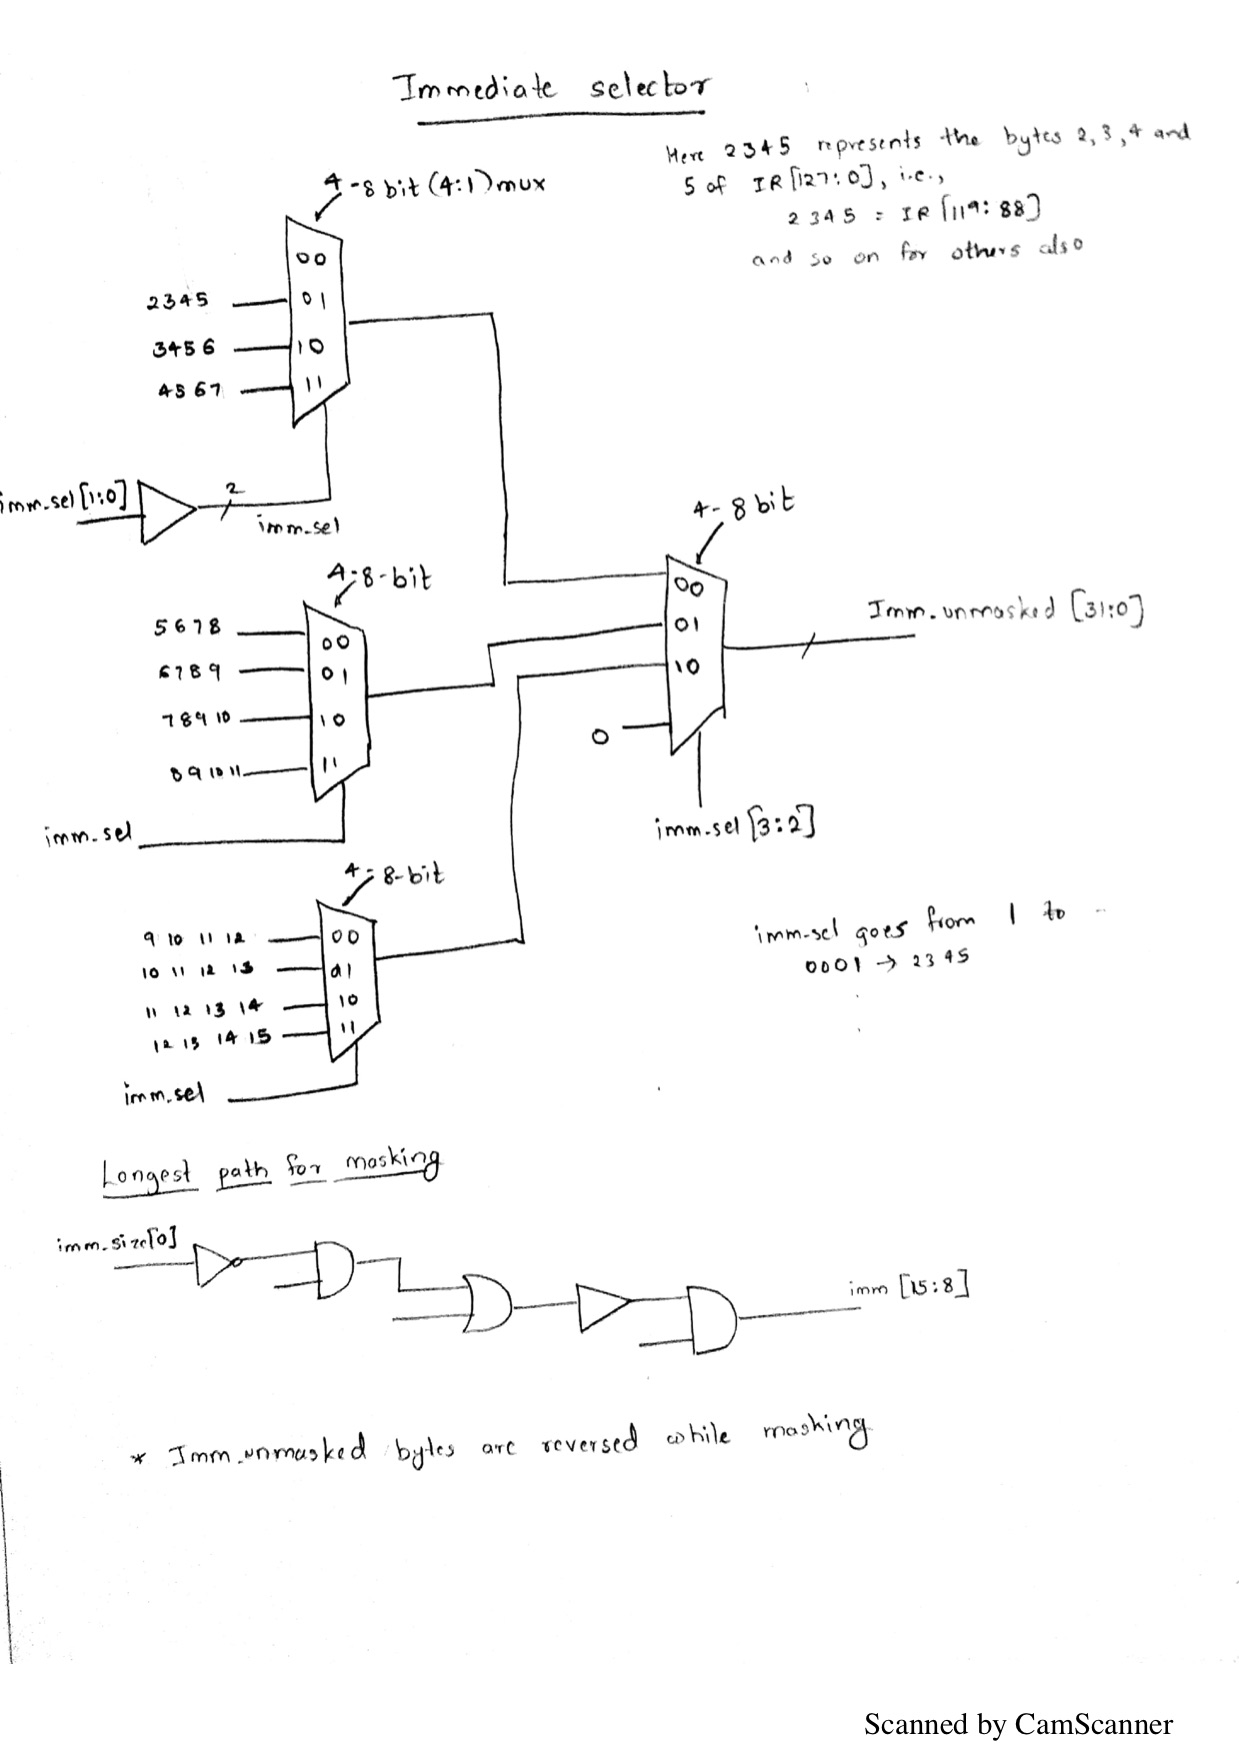 Immediate selector
Here 2345 represents the bytes 2,3,4 and
5 of IR[127:0], i.e.,
2345 = IR[119:88]
and so on for others also
4-8 bit (4:1) mux
00
2345 01
3456 10
4567 11
imm_sel[1:0]
2
imm_sel
4-8 bit
00
01
10
0
Imm_unmasked [31:0]
imm_sel[3:2]
4-8-bit
5678 00
6789 01
78910 10
891011 11
imm_sel
4-8-bit
9 10 11 12 00
10 11 12 13 01
11 12 13 14 10
12 13 14 15 11
imm_sel
imm_sel goes from 1 to --
0001 → 2345
Longest path for masking
imm_size[0]
imm [15:8]
* Imm_unmasked bytes are reversed while masking
Scanned by CamScanner